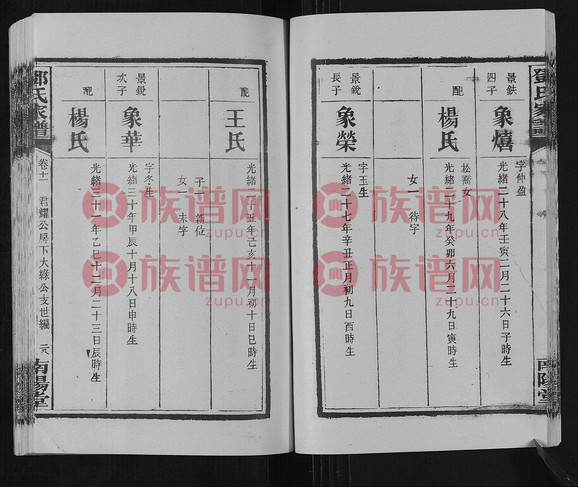 鄧氏家譜
南陽堂
景鉄
四子
象熺
字仲盈
光緒二十八年壬寅二月二十六日子時生
配
楊氏
松喬女
光緒二十九年癸卯六月二十九日寅時生
女一 待字
景銳
長子
象榮
字玉生
光緒二十七年辛丑正月初九日酉時生
配
王氏
光緒
年己亥十一月初十日巳時生
子一 新位
女一 未字
景銳
次子
象華
字冬生
光緒三十年甲辰十月十八日申時生
配
楊氏
光緒三十一年乙巳十二月二十三日辰時生
鄧氏家譜
卷十一 君耀公房下大綠公支世編
南陽堂
族谱网
zupu.cn
族谱网
zupu.cn
族谱网
zupu.cn
族谱网
zupu.cn